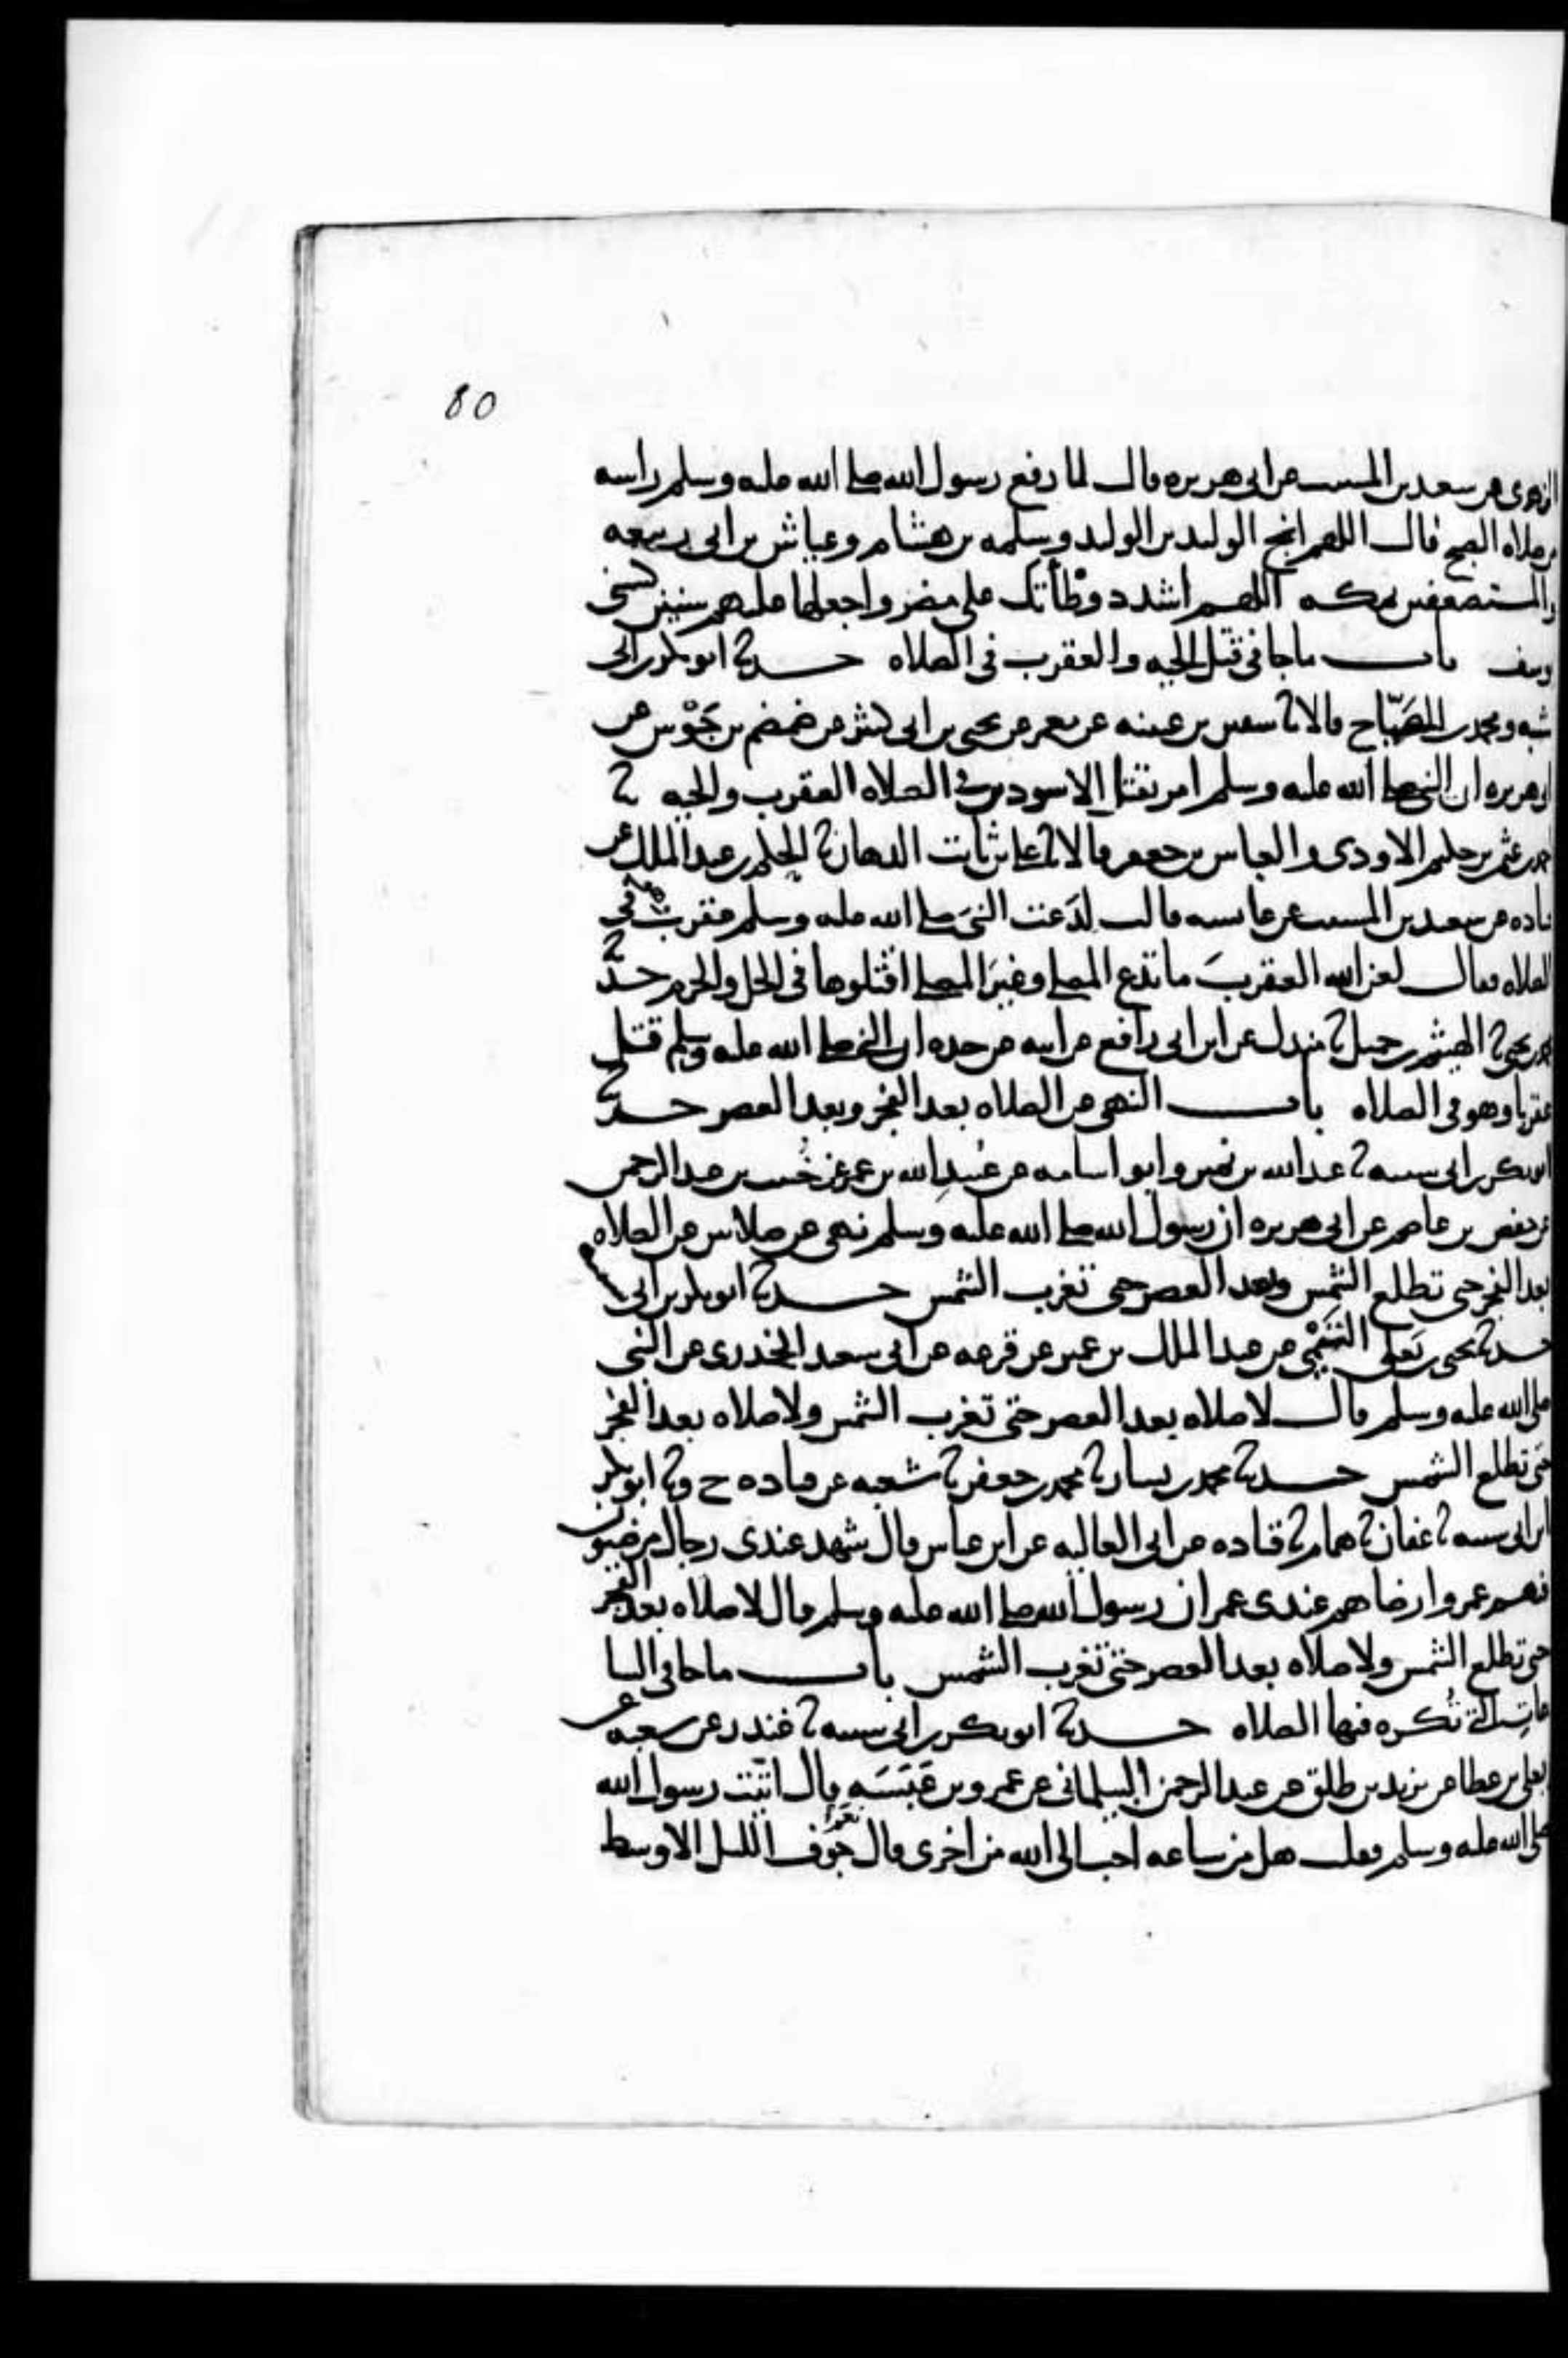 80
الزهري عن سعيد بن المسيب عن ابي هريره قال لما رفع رسول الله صلى الله عليه وسلم راسه
من صلاه الصبح قال اللهم انج الوليد بن الوليد وسلمه بن هشام وعياش بن ابي ربيعه
والمستضعفين بمكه اللهم اشدد وطأتك على مضر واجعلها عليهم سنين كسني
يوسف باب ما جا في قتل الحيه والعقرب في الصلاه حدثنا ابو بكر بن ابي
شيبه ومحمد بن الصَبّاح قالا ثنا سفين بن عيينه عن معمر عن يحيى بن ابي كثير عن ضمضم بن جَوْس عن
ابي هريره ان النبي صلى الله عليه وسلم امر بقتل الاسودين في الصلاه العقرب والحيه ثنا
احمد بن عثمن بن حكيم الاودي والعباس بن جعفر قالا ثنا علي بن ثابت الدهان ثنا الحكم بن عبد الملك عن
قتاده عن سعيد بن المسيب عن عايشه قالت لدَغت النبيَ صلى الله عليه وسلم عقرب وهو في
الصلاه فقال لعن الله العقربَ ما تدع المصلي وغيرَ المصلي اقتلوها في الحل والحرم حدثنا
محمد بن يحيى ثنا الهيثم بن جميل ثنا مندل عن ابن ابي رافع عن ابيه عن جده ان النبي صلى الله عليه وسلم قتل
عقربا وهو في الصلاه باب النهي عن الصلاه بعد الفجر وبعد العصر حدثنا
ابو بكر بن ابي شيبه ثنا عبد الله بن نمير وابو اسامه عن عُبيدِ الله بن عمر عن خُبيب بن عبد الرحمن
عن حفص بن عاصم عن ابي هريره ان رسول الله صلى الله عليه وسلم نهى عن صلاتين عن الصلاه
بعد الفجر حتى تطلع الشمس وبعد العصر حتى تغرب الشمس حدثنا ابو بكر بن ابي شيبه
حدثنا يحيى بن يَعلى التَيْمي عن عبد الملك بن عمير عن قزعه عن ابي سعيد الخدري عن النبي
صلى الله عليه وسلم قال لا صلاه بعد العصر حتى تغرب الشمس ولا صلاه بعد الفجر
حتى تطلع الشمس حدثنا محمد بن بشار ثنا محمد بن جعفر ثنا شعبه عن قتاده ح وثنا ابو بكر
ابن ابي شيبه ثنا عفان ثنا همام ثنا قتاده عن ابي العاليه عن ابن عباس قال شهد عندي رجال مرضيون
فيهم عمر وارضاهم عندي عمر ان رسول الله صلى الله عليه وسلم قال لا صلاه بعد الفجر
حتى تطلع الشمس ولا صلاه بعد العصر حتى تغرب الشمس باب ما جا في السا
عات التي تُكره فيها الصلاه حدثنا ابو بكر بن ابي شيبه ثنا غندر عن شعبه عن
يعلى بن عطا عن يزيد بن طلق عن عبد الرحمن البيلماني عن عمرو بن عَبَسَه قال اتيت رسول الله
صلى الله عليه وسلم فقلت هل من ساعه احب الى الله من اخرى قال نعم جوف الليل الاوسط